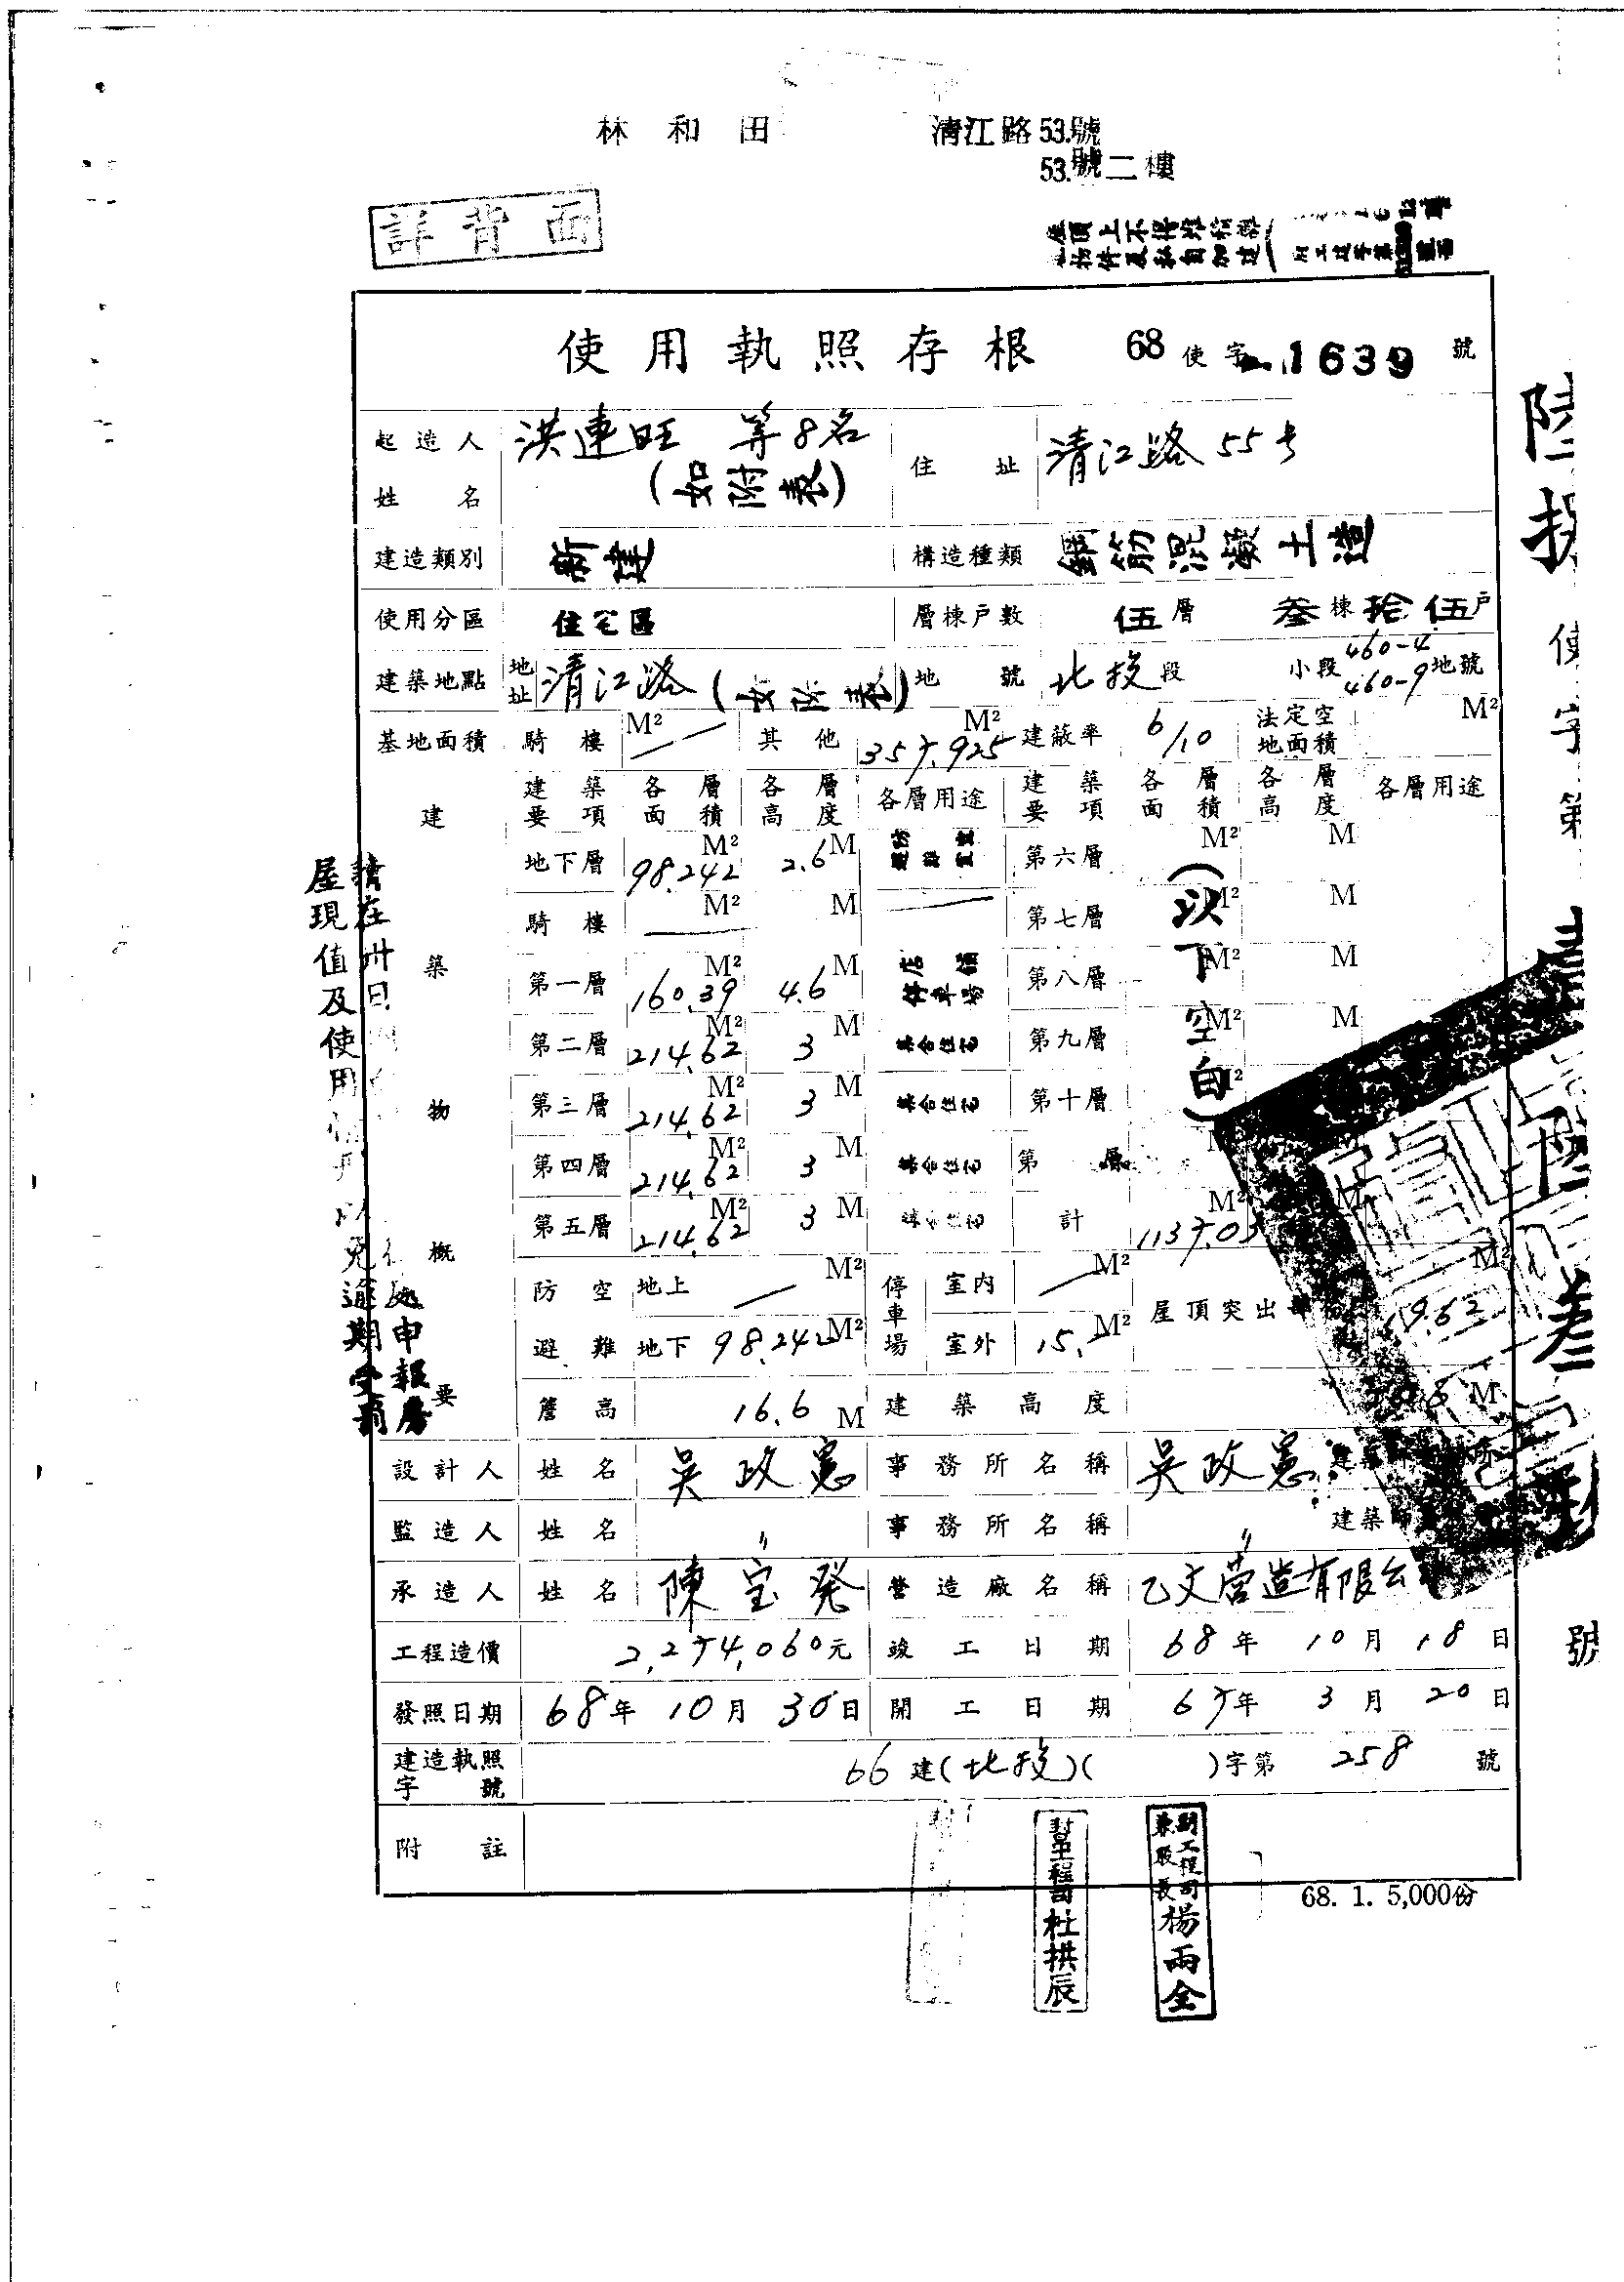 林和田 清江路53.號
53.號二樓
詳背面
使用執照存根 68使字 1639 號
起造人姓名 洪連旺 等8名 (如附表) 住址 清江路55号
建造類別 新建 構造種類 鋼筋混凝土造
使用分區 住宅區 層棟戶數 伍層 叁棟 拾伍戶
建築地點 地址 清江路(如附表) 地號 北投段 小段 460-4 460-9 地號
基地面積 騎樓 M² — 其他 357.925 M² 建蔽率 6/10 法定空地面積 M²
建築物概要 建築要項 各層面積 各層高度 各層用途 建築要項 各層面積 各層高度 各層用途
地下層 98.242 M² 2.6 M 第六層 M² M
騎樓 — M² M — 第七層 M² M
第一層 160.39 M² 4.6 M 店舖 停車場 第八層 M² M
第二層 214.62 M² 3 M 集合住宅 第九層 M² M
第三層 214.62 M² 3 M 集合住宅 第十層 M²
第四層 214.62 M² 3 M 集合住宅 第 層
第五層 214.62 M² 3 M 計 M²
(以下空白)
防空避難 地上 — M² 停車場 室內 — M² 屋頂突出 19.62 M²
地下 98.242 M² 室外 15.- M²
簷高 16.6 M 建築高度 M
設計人 姓名 吳政憲 事務所名稱 吳政憲 建築
監造人 姓名 〃 事務所名稱 〃 建築
承造人 姓名 陳宝癸 營造廠名稱 乙文营造有限公
工程造價 2,274,060元 竣工日期 68年10月18日
發照日期 68年10月30日 開工日期 67年3月20日
建造執照字號 66建(北投)( )字第 258 號
附註
68. 1. 5,000份
杜拱辰
副工程司兼股長楊雨全
請在卅日
處申報房
屋現值及使用
以免逾期受
使字第
號